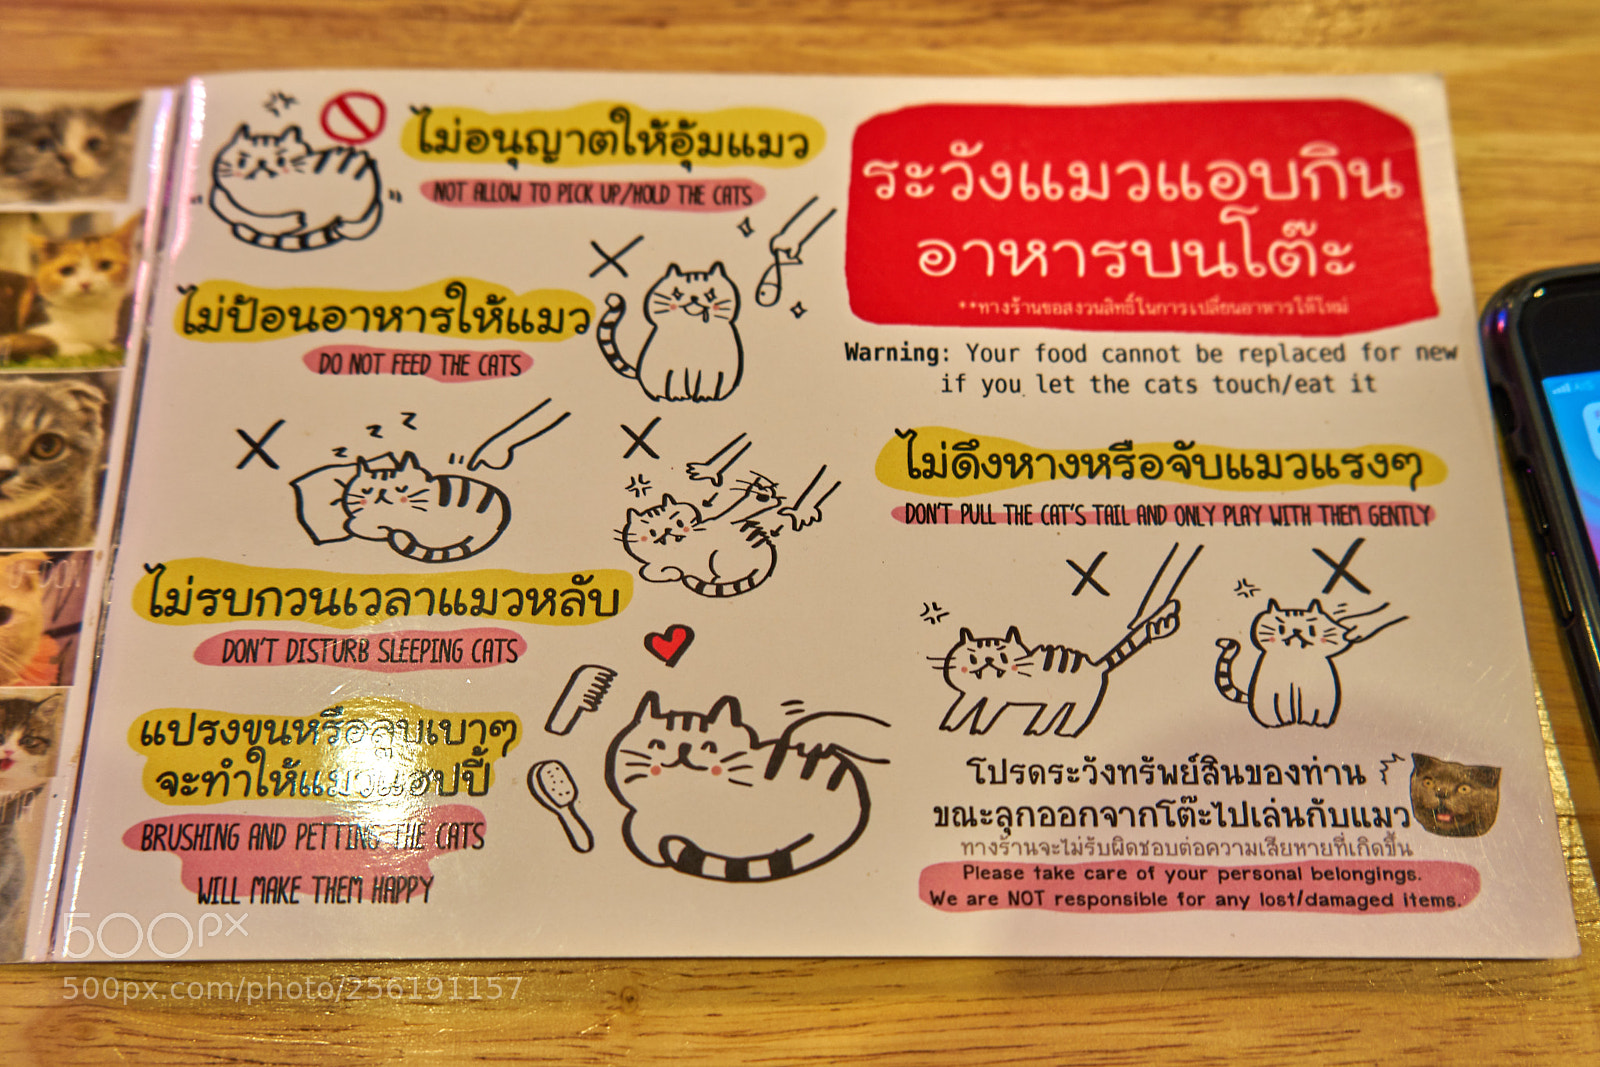 ไม่อนุญาตให้อุ้มแมว
NOT ALLOW TO PICK UP/HOLD THE CATS
ไม่ป้อนอาหารให้แมว
DO NOT FEED THE CATS
z z z
ไม่รบกวนเวลาแมวหลับ
DON'T DISTURB SLEEPING CATS
แปรงขนหรือลูบเบาๆ
จะทำให้แมวแฮปปี้
BRUSHING AND PETTING THE CATS
WILL MAKE THEM HAPPY
ระวังแมวแอบกิน
อาหารบนโต๊ะ
**ทางร้านขอสงวนสิทธิ์ในการเปลี่ยนอาหารให้ใหม่
Warning: Your food cannot be replaced for new
if you let the cats touch/eat it
ไม่ดึงหางหรือจับแมวแรงๆ
DON'T PULL THE CAT'S TAIL AND ONLY PLAY WITH THEM GENTLY
โปรดระวังทรัพย์สินของท่าน
ขณะลุกออกจากโต๊ะไปเล่นกับแมว
ทางร้านจะไม่รับผิดชอบต่อความเสียหายที่เกิดขึ้น
Please take care of your personal belongings.
We are NOT responsible for any lost/damaged items.
500px
500px.com/photo/256191157